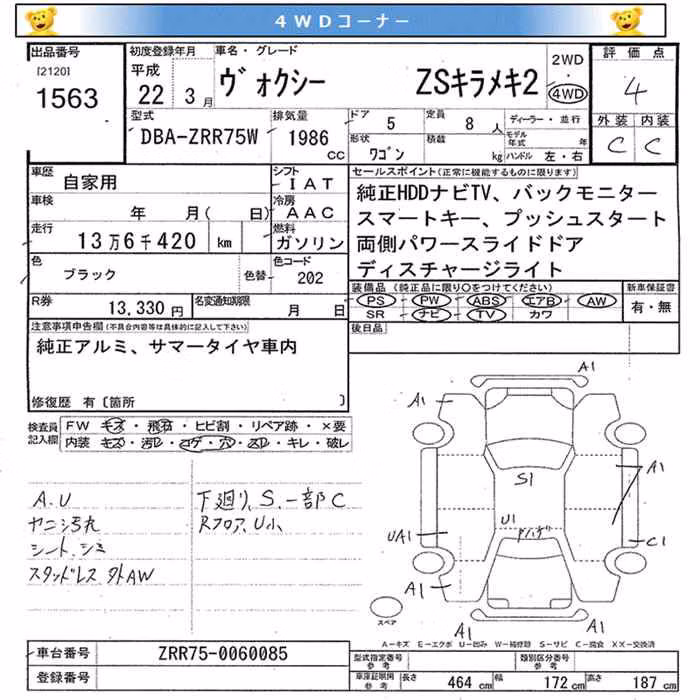 4WDコーナー
出品番号
[2120]
1563
初度登録年月
平成
22年 3月
車名・グレード
ヴォクシー ZSキラメキ2
2WD
4WD
評価点
4
外装 内装
C C
型式
DBA-ZRR75W
排気量
1986
CC
ドア 5
定員 8人
形状 ワゴン
積載 kg
ディーラー・並行
モデル年式 年
ハンドル 左・右
車歴 自家用
シフト IAT
車検 年 月( 日)
冷房 AAC
走行 13万6千420 km
燃料 ガソリン
色 ブラック 色替
色コード 202
R券 13,330円
名変通知期限 月 日
セールスポイント(正常に機能するものに限ります)
純正HDDナビTV、バックモニター
スマートキー、プッシュスタート
両側パワースライドドア
ディスチャージライト
装備品(純正品に限り○をつけてください)
PS PW ABS エアB AW
SR ナビ TV カワ
新車保証書
有・無
後日品
注意事項申告欄(不具合内容等は具体的に記入して下さい)
純正アルミ、サマータイヤ車内
修復歴 有〔箇所 〕
検査員記入欄
FW キズ・飛石・ヒビ割・リペア跡・×要
内装 キズ・汚レ・コゲ・穴・スレ・キレ・破レ
A.U
ヤニシ汚れ
シート、シミ
スタッドレス 外AW
下廻り、S、一部C
Rフロア、U小
A1
A1
S1
A1
U1
ドハゲ
UA1
C1
A1
A1
A1
スペア
A-キズ E-エクボ U-凹み W-補修跡 S-サビ C-腐食 XX-交換済
車台番号 ZRR75-0060085
登録番号
型式指定番号 参考
類別区分番号 参考
車庫証明欄 参考
長さ 464cm 幅 172cm 高さ 187cm